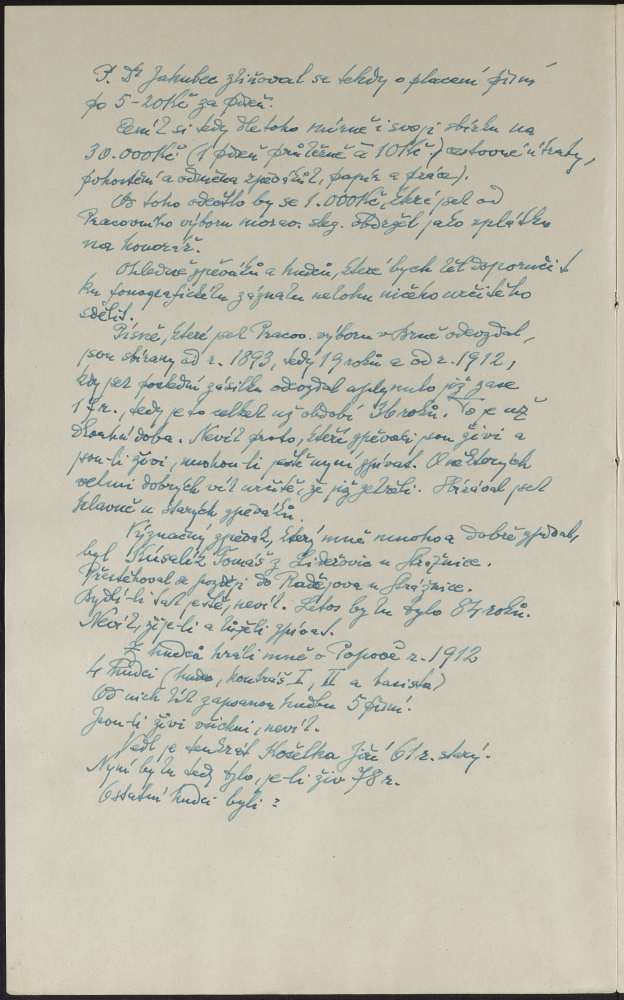 P. Dr Jakubec zmiňoval se tehdy o placení písní
po 5-20 Kč za píseň.
Cením si tedy dle toho mírně i svoji sbírku na
30.000 Kč (1 píseň průměrně à 10 Kč) cestovné útraty,
pohostění a odměna zpěvákům, papír a práce).
Od toho odečetlo by se 1.000 Kč, které jsem od
Pracovního výboru morav. slez. obdržel jako splátku
na honorář.
Ohledně zpěváků a hudců, které bych měl doporučit
ku fonografickému záznamu nemohu ničeho určitého
sdělit.
Písně, které jsem Pracov. výboru v Brně odevzdal,
jsou sbírány od r. 1893, tedy 19 roků a od r. 1912,
kdy jsem poslední zásilku odevzdal uplynulo již zase
17 r., tedy je to celkem už období 36 roků. To je už
dlouhá doba. Nevím proto, kteří zpěváci jsou živi a
jsou-li živi, mohou-li ještě nyní zpívat. O některých
velmi dobrých vím určitě, že již zemřeli. Sbíral jsem
hlavně u starých zpěváků.
Význačný zpěvák, který mně mnoho a dobře zpíval,
byl Tomáš z Lideřovic u Strážnice.
Přestěhoval se později do Radějova u Strážnice.
Bydlí-li tam ještě, nevím. Letos by mu bylo 84 roků.
Nevím, žije-li a může-li zpívat.
Z hudců hráli mně v Popově r. 1912
4 hudci (hudec, kontráš I, II a basista)
Od nich mám zapsanou hudbu 5 písní.
Jsou-li živi všichni, nevím.
Vedl je tenkrát Kočelka Jiří 61 r. starý.
Nyní by mu tedy bylo, je-li živ 78 r.
Ostatní hudci byli: